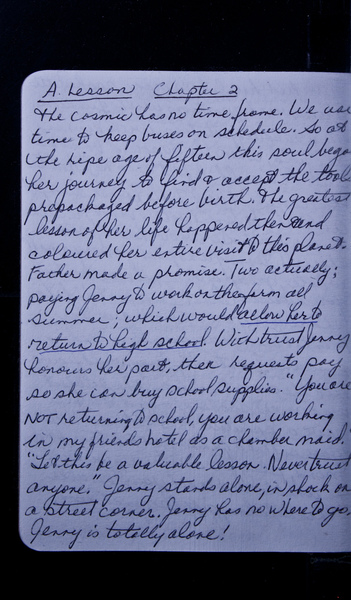 A Lesson Chapter 2
The cosmic has no time frame. We use
time to keep buses on schedule. So at
the ripe age of fifteen this soul began
her journey to find & accept the tools
prepackaged before birth. The greatest
lesson of her life happened then and
coloured her entire visit to this planet.
Father made a promise. Two actually;
paying Jenny to work on the farm all
summer; which would allow her to
return to high school. With trust Jenny
honours her part, then requests pay
so she can buy school supplies. "You are
NOT returning to school, you are working
in my friends hotel as a chamber maid."
"Let this be a valuable lesson. Never trust
anyone." Jenny stands alone, in shock on
a street corner. Jenny has no where to go.
Jenny is totally alone!